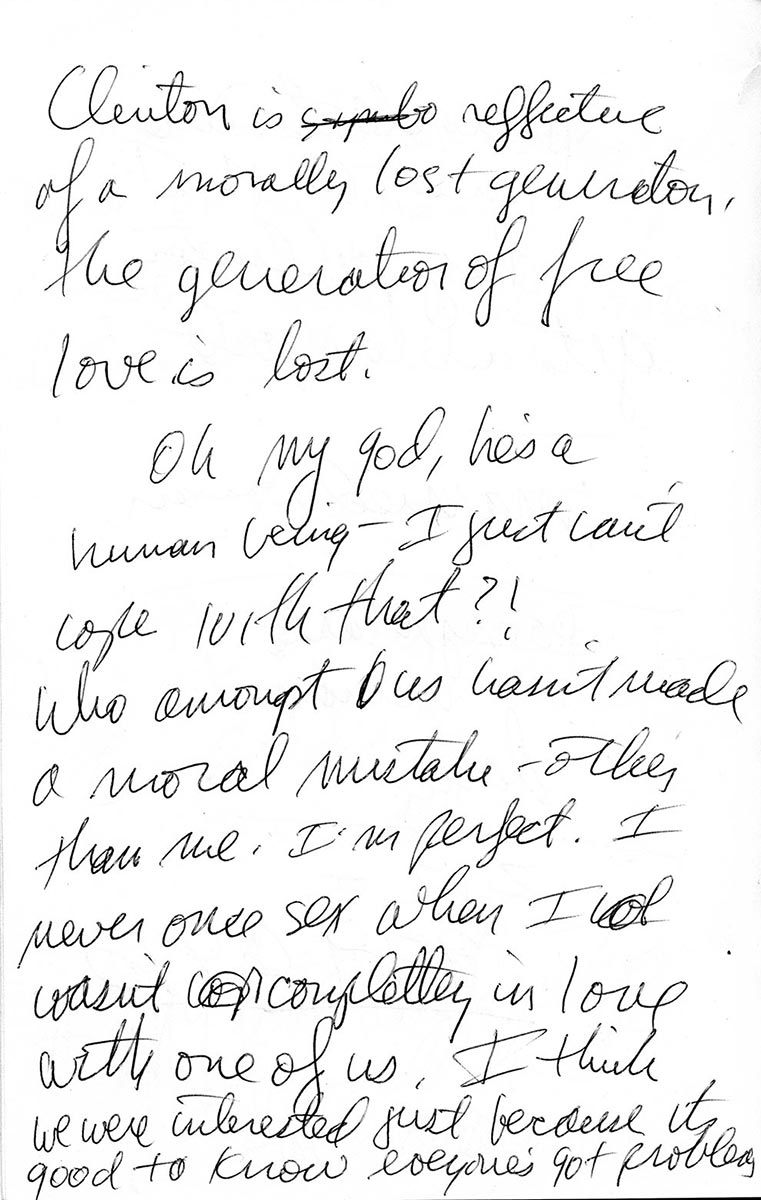 Clinton is reflective
of a morally lost generation.
the generation of free
love is lost.
Oh my god, he's a
human being - I just can't
cope with that?!
Who amongst us hasn't made
a moral mistake - other
than me. I'm perfect. I
never once sex when I
wasn't completley in love
with one of us. I think
we were interested just because its
good to know everyone's got problems